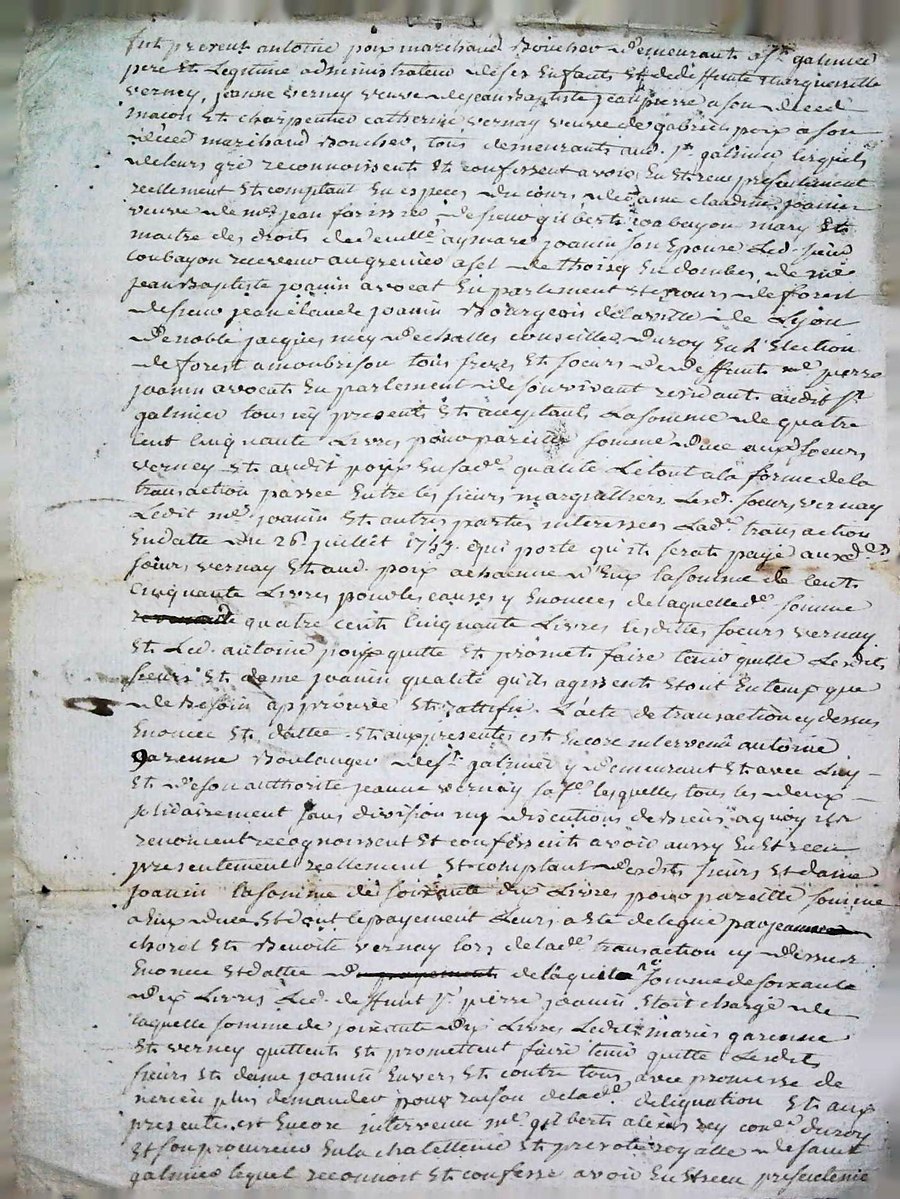 fut present antoine poix marchand Boucher demeurant a St galmier
pere et Legitime administrateur de ses Enfants et de deffunte Marguerite
verney, jeanne vernay veuve de jean Baptiste jean pierre a son deced
macon et charpentier catherine vernay veuve de gabriel poix a son
deced marchand Boucher, tous demeurants aud. St galmier lesquels
de leurs gré reconnoissent et confessent avoir Eu et receu presentement
reellement et comptant En especes du cours de dame claudine joanin
veuve de me jean forissier, de sieur gilbert coubayon mary et
maitre des droits de demlle aymare joanin son Epouse Led. sieur
Coubayon receveur au grenier a sel de thoissy En dombes, de me
jean Baptiste joanin avocat En parlement et cours de forest
de sieur jean claude joanin Bourgeois de la ville de Lyon
De noble jacques mey dechalles conseiller du roy En L'Election
de forest a monbrison tous freres et soeurs de deffunt me pierre
joanin avocat En parlement de son vivant residant audit St
galmier tous icy present et acceptants La somme de quatre
cent Cinquante Livres pour pareille somme due aux soeurs
verney et audit poix En sade qualité Le tout a la forme de la
transaction passee Entre les sieurs marguilliers Lesd. soeurs vernay
Ledit me joanin et autres parties interessées Lade transaction
En datte du 26 juillet 1753 qui porte qu'il serat payé auxd
soeurs vernay et aud. poix a chacune d'Eux la somme de cent
Cinquante Livres pour les causes y Enoncees de laquelle de somme
quatre cents Cinquante Livres lesdittes soeurs vernay
et Led. antoine poix quitte et promet faire tenir quitte Lesdits
sieurs et dame joanin qualité qu'ils agissent et ont En temps que
de Besoin approuvée et rattifie L'acte de transaction cy dessus
Enoncée et dattée. Et aux presentes est Encore intervenu antoine
garenne Boulanger de St galmier y demeurant et avec Luy
et de son authorité jeanne vernay sa fe lesquelles tous les deux
solidairement sans division ny discution de Biens a quoy ils
renoncent recognoissent et confessent avoir aussy Eu et receu
presentement reellement et comptant desdits sieurs et dame
joanin la somme de soixante dix Livres pour pareille somme
a Eux due et dont le payement Leurs a eté delegué par jeanne
chorel et Benoite vernay lors de lade transaction cy dessus
Enoncée et dattée de laquelle somme de soixante
dix Livres Led. deffunt sr pierre joanin Etoit chargé de
laquelle somme de soixante dix Livres Ledits mariés garenne
et verney quittent et promettent faire tenir quitte Lesdits
sieurs et dame joanin Envers et contre tous avec promesse de
ne rien plus demander pour raison de lade deleguation Et aux
presente est Encore intervenu me gilbert alexis rey coner du roy
Et son procureur En la chatellenie et prevoté royalle de saint
galmier lequel reconnoit et confesse avoir Eu et receu presentement